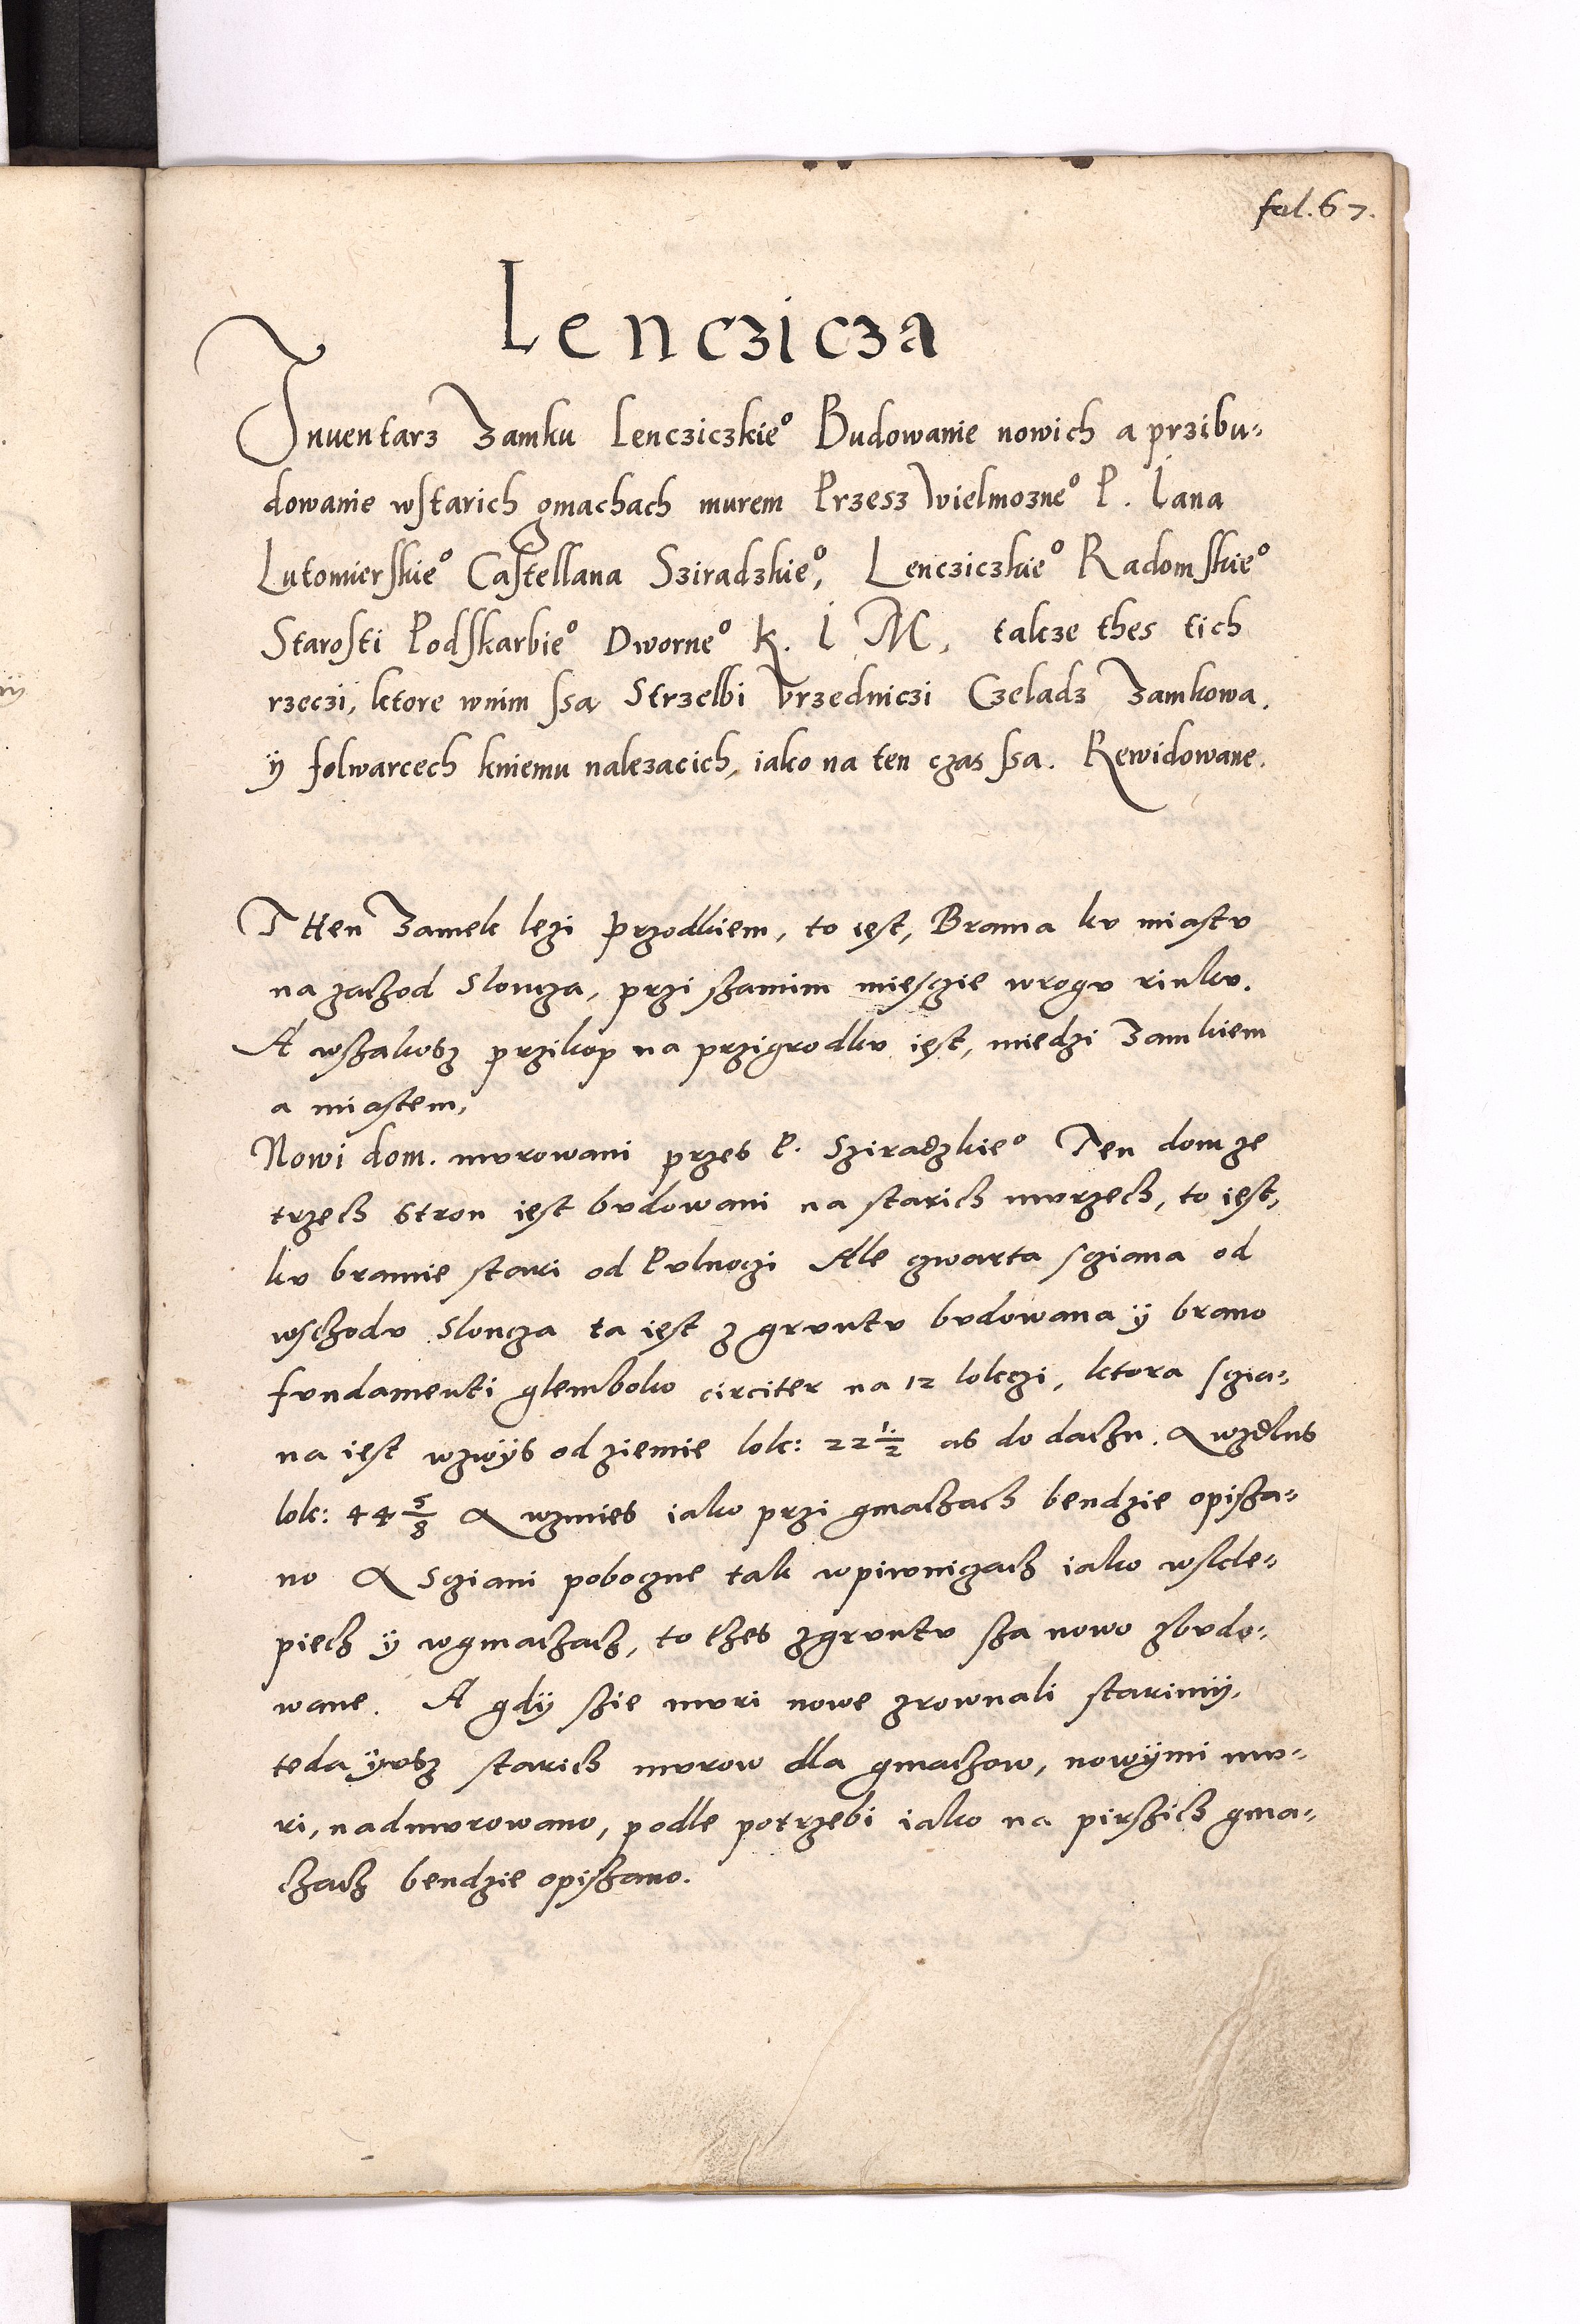 fol. 67.
Lenczicza
Inuentarz Zamku Lencziczkie° Budowanie nowich a przibu-
dowanie wstarich gmachach murem Przesz Wielmozne° P. Iana
Lutomierskie° Castellana Sziradzkie°, Lencziczkie° Radomskie°
Starosti Podskarbie° Dworne° K. I M, takze thes tich
rzeczi, ktore wnim ssa Strzelbi Vrzedniczi Czeladz Zamkowa.
ÿ folwarcech kniemu nalezacich, iako na ten czas ssa. Rewidowane.
Tten Zamek lezi Przodkiem, to iest, Brama kv miastv
na zachod Sloncza, przi szamim miesczie wrogv rinkv.
A wszakosz przikop na przigrodkv iest, miedzi Zamkiem
a miastem,
Nowi dom. mvrowani przes P. Sziradzkie° Ten dom ze
trzech stron iest bvdowani na starich mvrzech, to iest,
kv bramie stari od Pvlnoczi Ale czwarta sciana od
wschodv Sloncza ta iest z grvntv bvdowana ÿ brano
fvndamenti glemboko circiter na 12 lokczi, ktora scia-
na iest wzwÿs od ziemie lok: 22 1/2 as do dachu. A wzdlus
lok: 44 5/8 A wzmies iako przi gmachach bendzie opisza-
no A Sciani poboczne tak wpiwniczach iako wskle-
piech ÿ wgmachach, to thes zgrvntv sza nowo zbvdo-
wane. A gdÿ szie mvri nowe zrownali starimÿ,
teda ÿvsz starich mvrow dla gmachow, nowÿmi mv-
ri, nadmvrowano, podle potrzebi iako na pirszich gma-
chach bendzie opiszano.